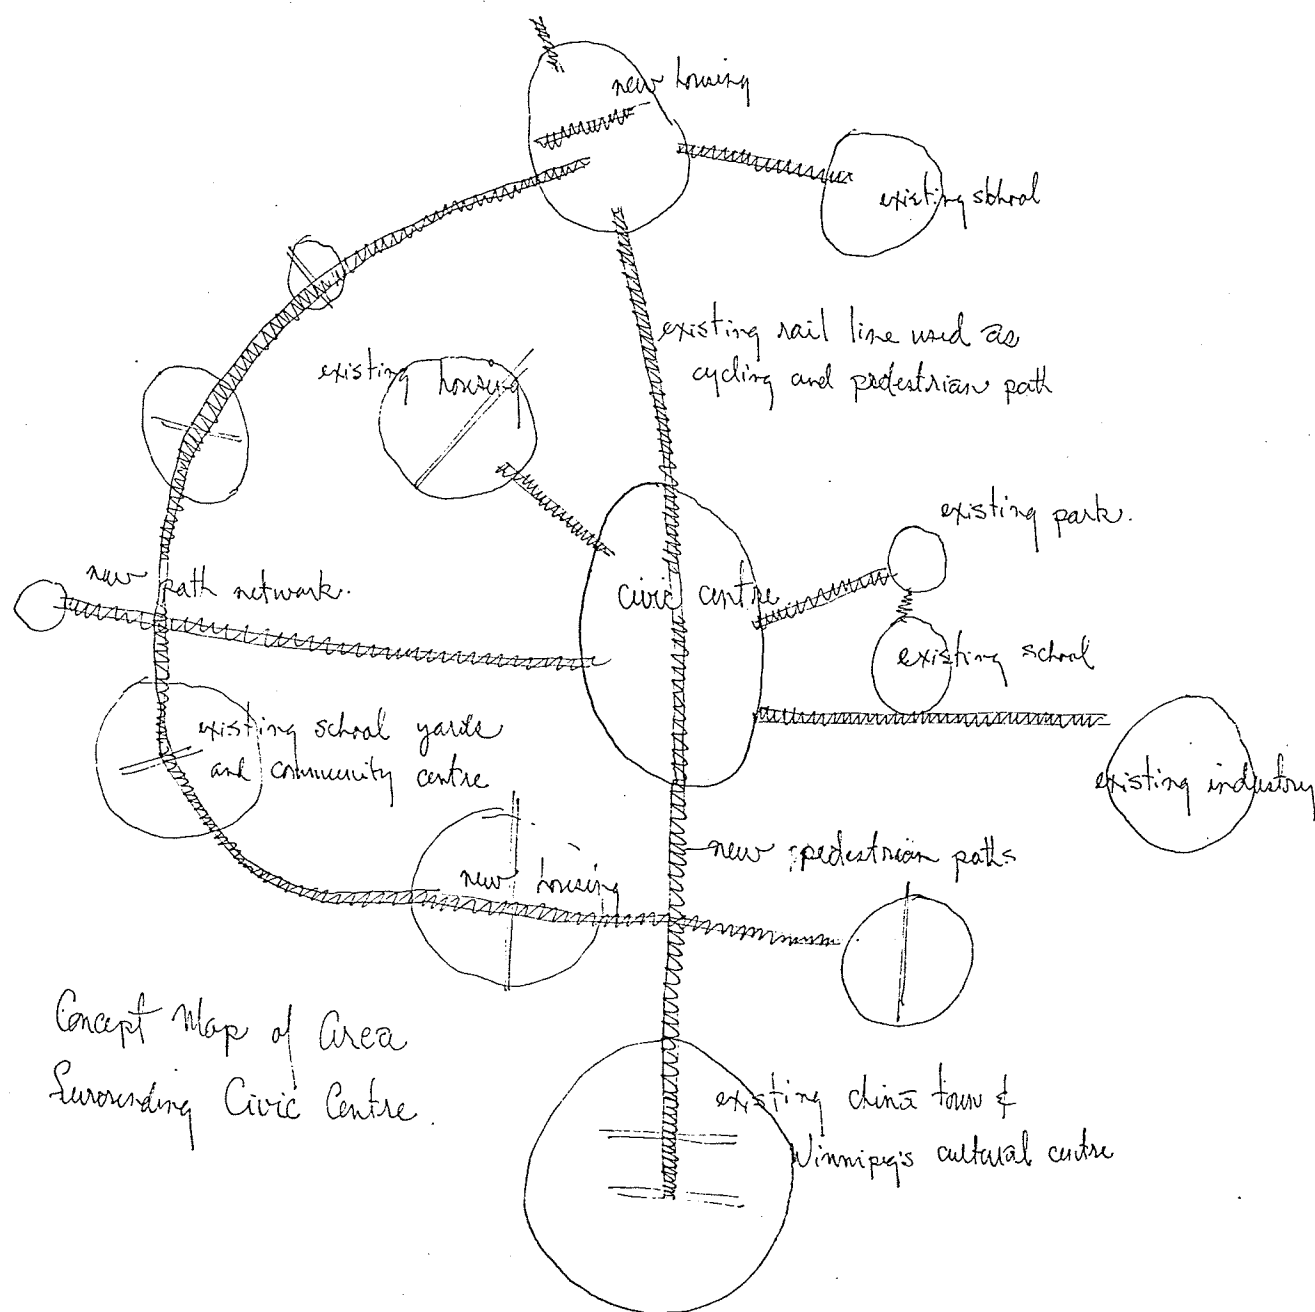 new housing
existing school
existing rail line used as
cycling and pedestrian path
existing housing
existing park.
new path network.
civic centre
existing school
existing school yards
and community centre
existing industry
new pedestrian paths
new housing
Concept Map of Area
Surrounding Civic Centre.
existing china town &
Winnipeg's cultural centre